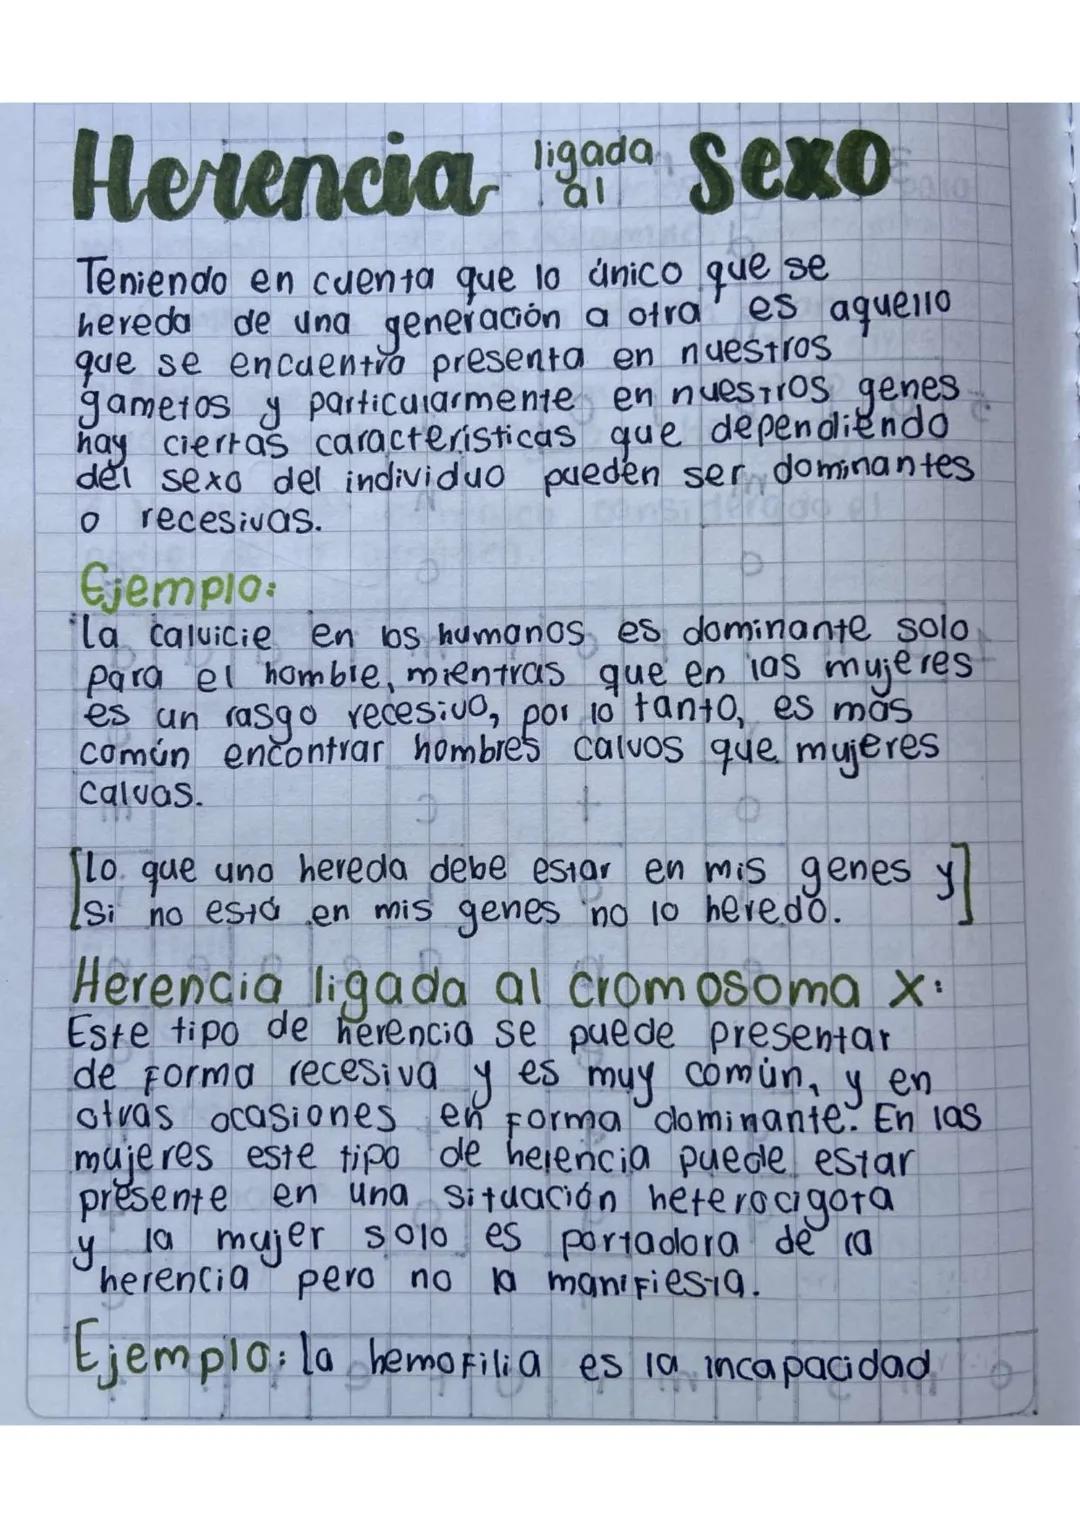 Herencia ligada al Sexo
Teniendo en cuenta que lo único que se
hereda de una generación a otra es aquello
que se encuentra presenta en nuestros
gametos y particularmente en nuestros genes
hay ciertas características que dependiendo
del sexo del individuo pueden ser dominantes
o recesivas.
Ejemplo:
La calvicie en los humanos es dominante solo
para el hombre, mientras que en las mujeres
es un rasgo recesivo, por lo tanto, es más
común encontrar hombres calvos que mujeres
calvas.
[Lo que uno hereda debe estar en mis genes y
si no está en mis genes no lo heredo.]
Herencia ligada al cromosoma X:
Este tipo de herencia se puede presentar
de forma recesiva y es muy común, y en
otras ocasiones en forma dominante. En las
mujeres este tipo de herencia puede estar
presente en una situación heterocigota
y la mujer solo es portadora de la
herencia pero no la manifiesta.
Ejemplo: la hemofilia es la incapacidad